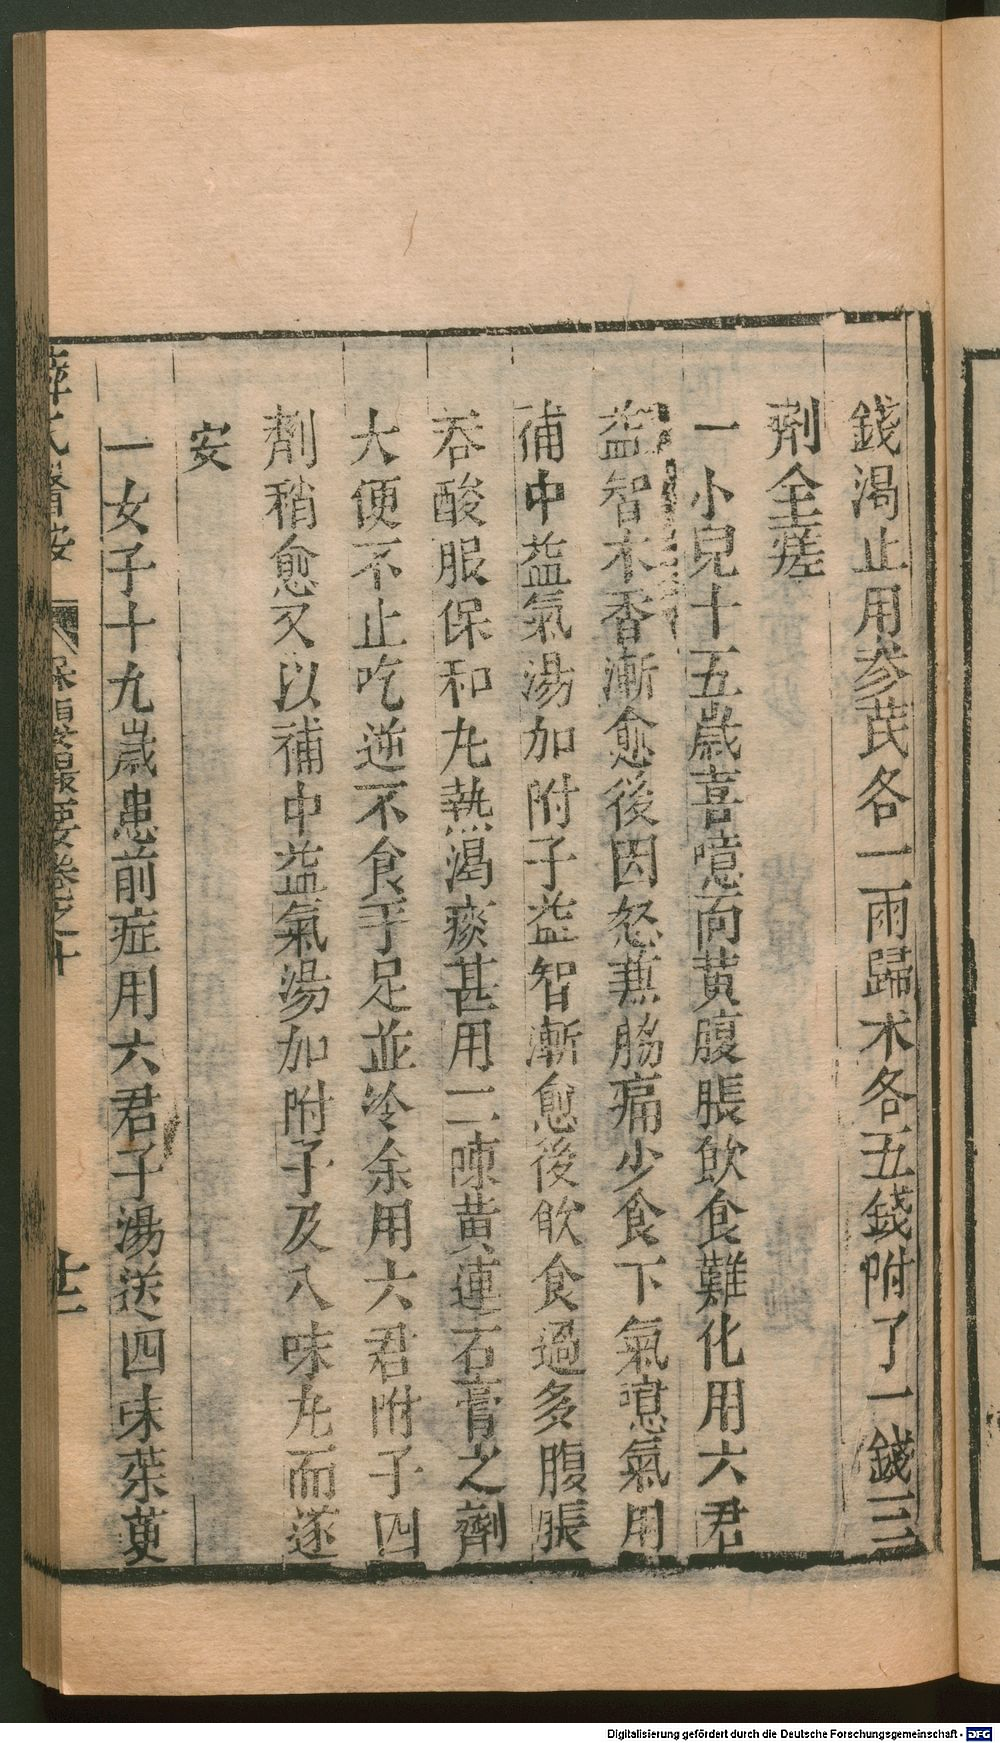 錢渴止用參芪各一兩歸术各五錢附子一錢三
劑全瘥
一小兒十五歲喜噫面黃腹脹飲食難化用六君
益智木香漸愈後因怒兼脇痛少食下氣噫氣用
補中益氣湯加附子益智漸愈後飲食過多腹脹
吞酸服保和丸熱渴痰甚用二陳黃連石膏之劑
大便不止吃逆不食手足並冷余用六君附子四
劑稍愈又以補中益氣湯加附子及八味丸而遂
安
一女子十九歲患前症用六君子湯送四味茱萸
薛氏醫按 保嬰撮要卷之十 廿二
Digitalisierung gefördert durch die Deutsche Forschungsgemeinschaft - DFG